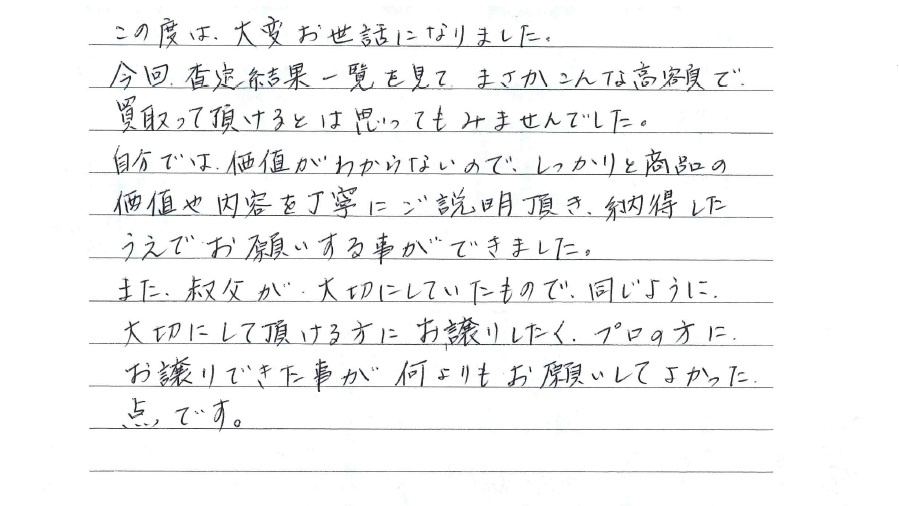 この度は、大変お世話になりました。
今回、査定結果一覧を見て、まさかこんな高額で、
買取って頂けるとは思ってもみませんでした。
自分では、価値がわからないので、しっかりと商品の
価値や内容を丁寧にご説明頂き、納得した
うえでお願いする事ができました。
また、叔父が、大切にしていたもので、同じように、
大切にして頂ける方にお譲りしたく、プロの方に、
お譲りできた事が何よりもお願いしてよかった、
点です。